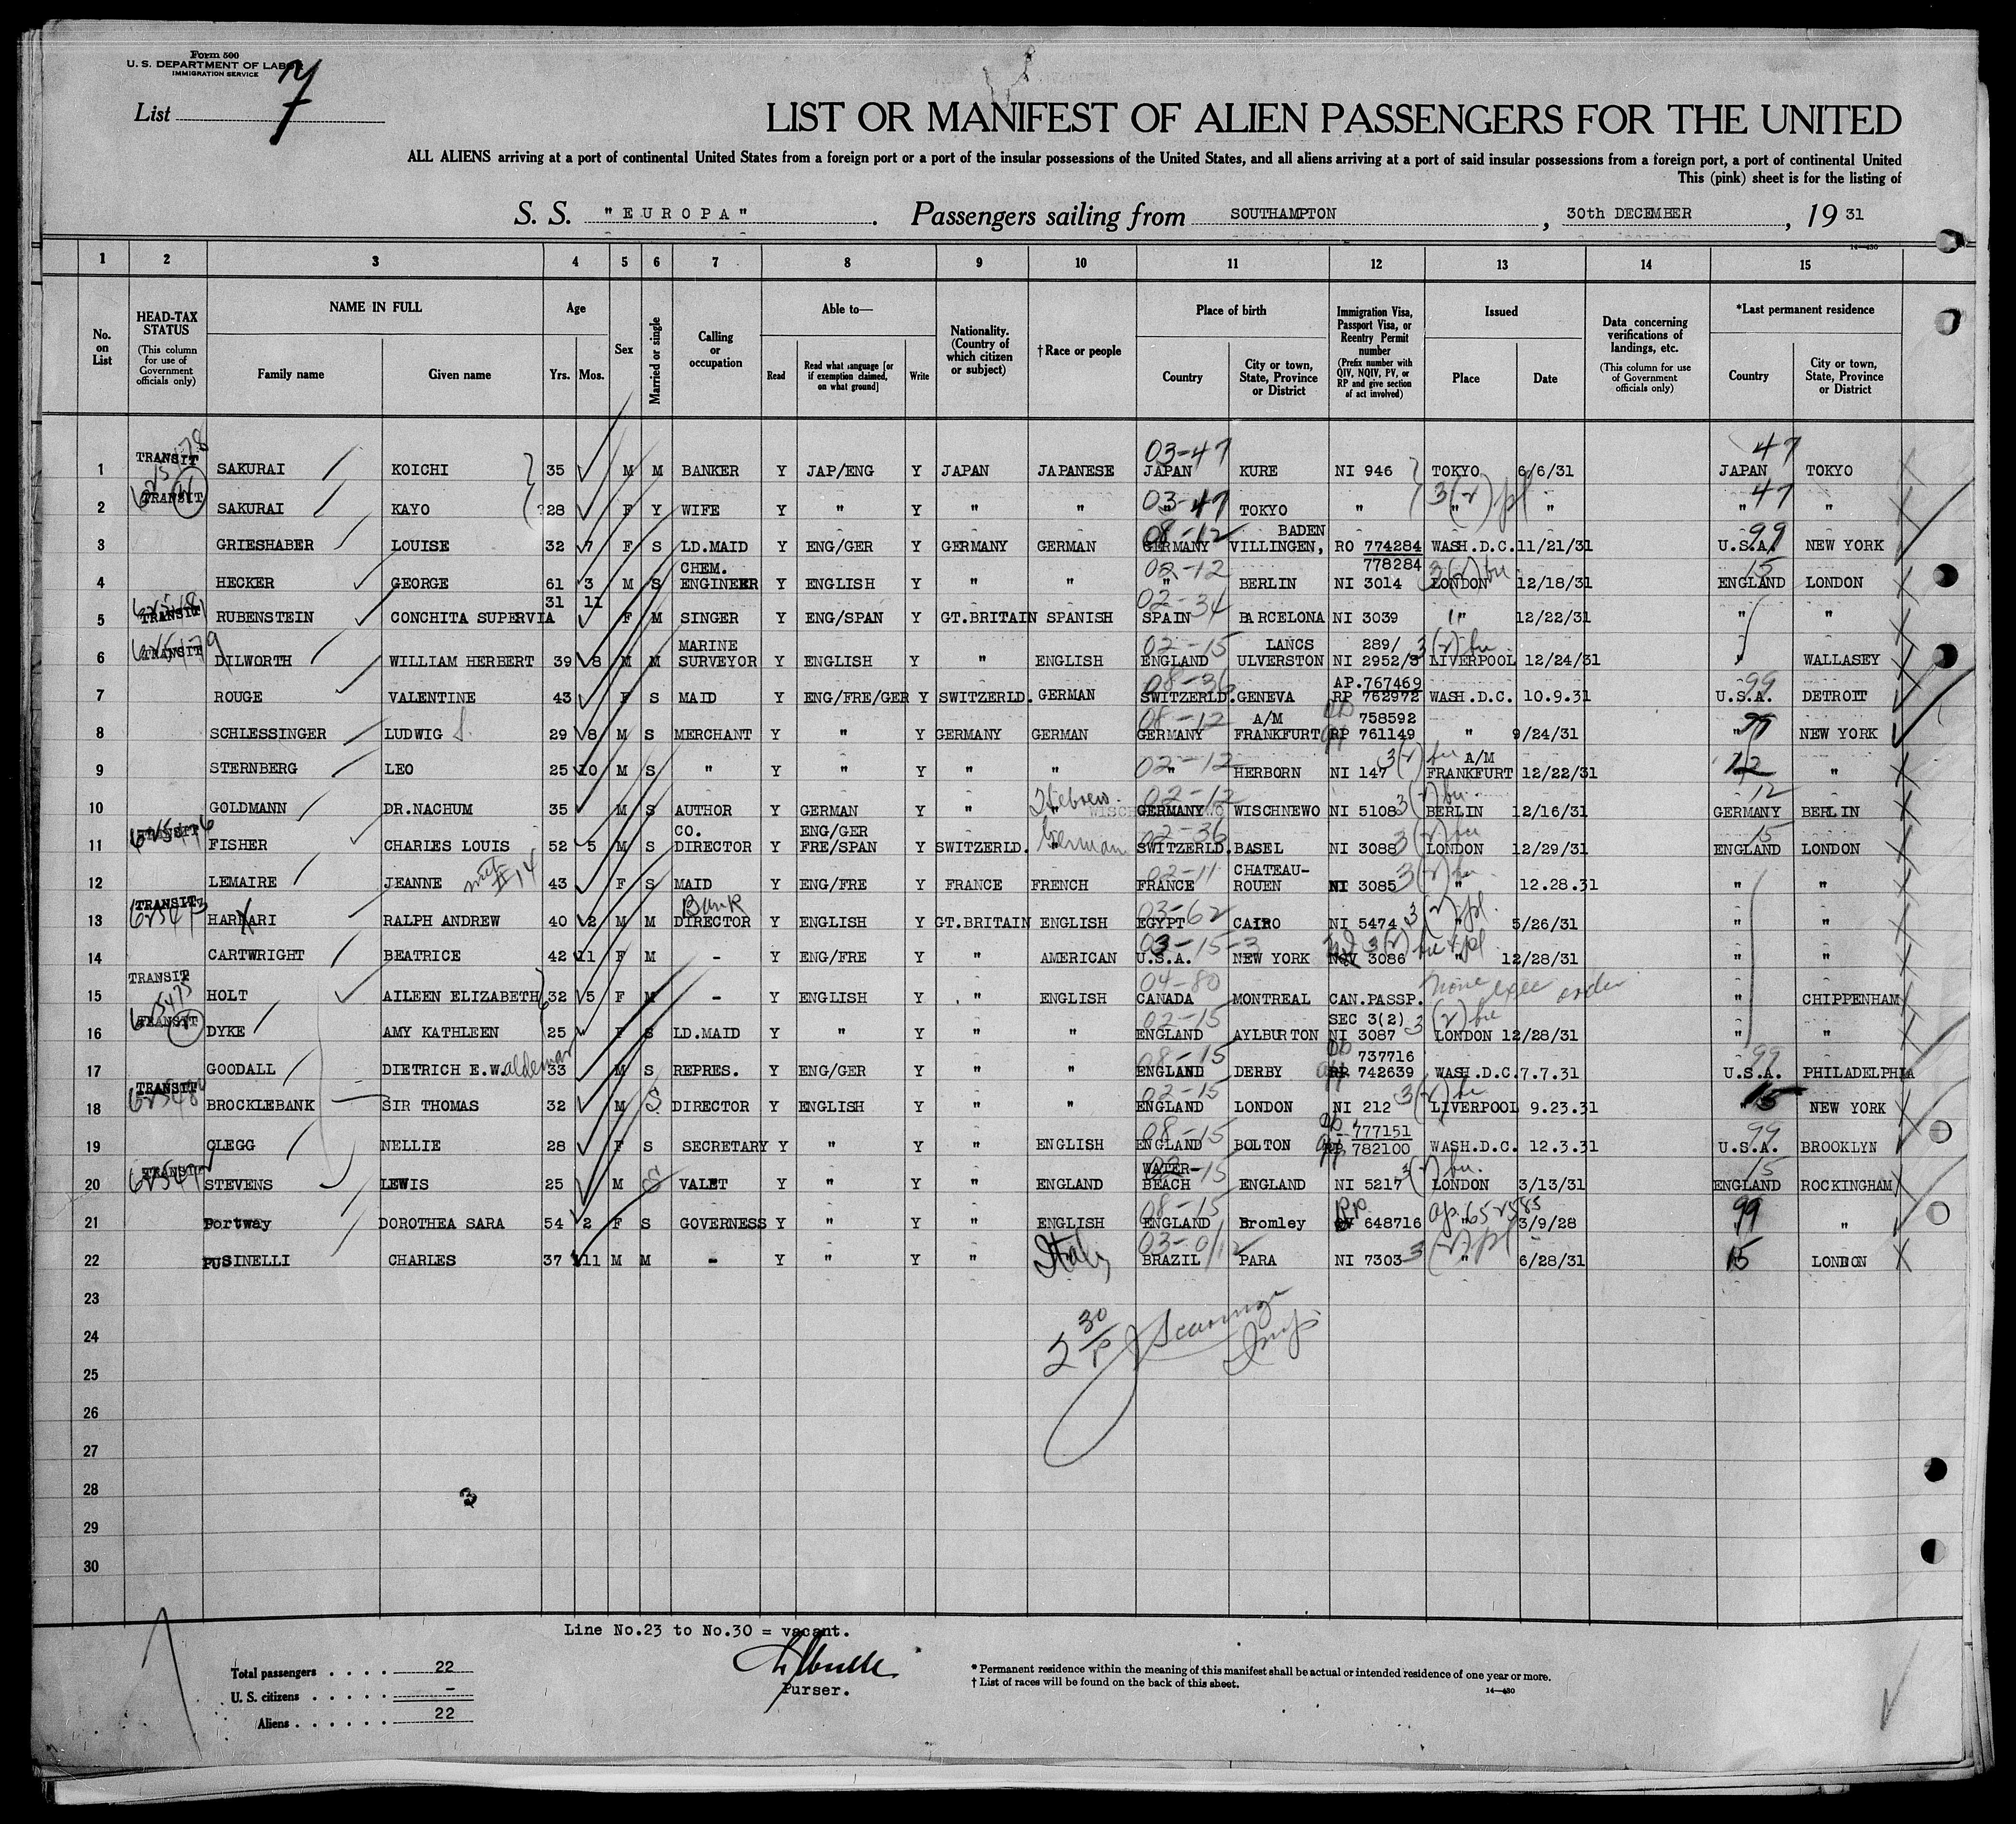 Form 500
U. S. DEPARTMENT OF LABOR
IMMIGRATION SERVICE
List 7
LIST OR MANIFEST OF ALIEN PASSENGERS FOR THE UNITED
ALL ALIENS arriving at a port of continental United States from a foreign port or a port of the insular possessions of the United States, and all aliens arriving at a port of said insular possessions from a foreign port, a port of continental United
This (pink) sheet is for the listing of
S. S. "EUROPA". Passengers sailing from SOUTHAMPTON, 30th DECEMBER, 1931
14—430
1 2 3 4 5 6 7 8 9 10 11 12 13 14 15
No. on List
HEAD-TAX STATUS (This column for use of Government officials only)
NAME IN FULL Family name Given name
Age Yrs. Mos.
Sex
Married or single
Calling or occupation
Able to— Read Read what language [or if exemption claimed, on what ground] Write
Nationality. (Country of which citizen or subject)
†Race or people
Place of birth Country City or town, State, Province or District
Immigration Visa, Passport Visa, or Reentry Permit number (Prefix number with QIV, NQIV, PV, or RP and give section of act involved)
Issued Place Date
Data concerning verifications of landings, etc. (This column for use of Government officials only)
*Last permanent residence Country City or town, State, Province or District
03-47 47
1 TRANSIT SAKURAI KOICHI 35 M M BANKER Y JAP/ENG Y JAPAN JAPANESE JAPAN KURE NI 946 TOKYO 6/6/31 JAPAN TOKYO
03-47 3(2) pl 47
2 TRANSIT SAKURAI KAYO 28 F Y WIFE Y " Y " " " TOKYO " " " " "
08-12 BADEN 99
3 GRIESHABER LOUISE 32 7 F S LD.MAID Y ENG/GER Y GERMANY GERMAN GERMANY VILLINGEN, RO 774284 WASH.D.C. 11/21/31 U.S.A. NEW YORK
CHEM. 02-12 778284 3(2) bu 15
4 HECKER GEORGE 61 3 M S ENGINEER Y ENGLISH Y " " " BERLIN NI 3014 LONDON 12/18/31 ENGLAND LONDON
31 11 02-34
5 TRANSIT RUBENSTEIN CONCHITA SUPERVIA F M SINGER Y ENG/SPAN Y GT.BRITAIN SPANISH SPAIN BARCELONA NI 3039 " 12/22/31 " "
MARINE 02-15 LANCS 289/ 3(2) bu
6 TRANSIT DILWORTH WILLIAM HERBERT 39 8 M M SURVEYOR Y ENGLISH Y " ENGLISH ENGLAND ULVERSTON NI 2952/3 LIVERPOOL 12/24/31 " WALLASEY
08-36 AP.767469 99
7 ROUGE VALENTINE 43 F S MAID Y ENG/FRE/GER Y SWITZERLD. GERMAN SWITZERLD. GENEVA RP 762972 WASH.D.C. 10.9.31 U.S.A. DETROIT
08-12 A/M 758592 99
8 SCHLESSINGER LUDWIG 29 8 M S MERCHANT Y " Y GERMANY GERMAN GERMANY FRANKFURT RP 761149 " 9/24/31 " NEW YORK
02-12 3(2) bu A/M 12
9 STERNBERG LEO 25 10 M S " Y " Y " " " HERBORN NI 147 FRANKFURT 12/22/31 "
Hebrew 02-12 3(2) bu 12
10 GOLDMANN DR.NACHUM 35 M S AUTHOR Y GERMAN Y " GERMANY WISCHNEWO NI 5108 BERLIN 12/16/31 GERMANY BERLIN
625476 CO. ENG/GER German 02-36 3(2) bu 15
11 TRANSIT FISHER CHARLES LOUIS 52 5 M S DIRECTOR Y FRE/SPAN Y SWITZERLD. " SWITZERLD. BASEL NI 3088 LONDON 12/29/31 ENGLAND LONDON
02-11 CHATEAU- 3(2) bu
12 LEMAIRE JEANNE 43 F S MAID Y ENG/FRE Y FRANCE FRENCH FRANCE ROUEN NI 3085 " 12.28.31 " "
625473 Bank 03-62 3(2) pl
13 TRANSIT HARARI RALPH ANDREW 40 2 M M DIRECTOR Y ENGLISH Y GT.BRITAIN ENGLISH EGYPT CAIRO NI 5474 " 5/26/31 " "
03-15-3 3(2) bu + pl
14 CARTWRIGHT BEATRICE 42 11 F M - Y ENG/FRE Y " AMERICAN U.S.A. NEW YORK 3086 " 12/28/31 " "
04-80 None exec order
15 TRANSIT HOLT AILEEN ELIZABETH 32 5 F M - Y ENGLISH Y " ENGLISH CANADA MONTREAL CAN.PASSP. " CHIPPENHAM
625475 02-15 SEC 3(2) 3(2) bu
16 TRANSIT DYKE AMY KATHLEEN 25 F S LD.MAID Y " Y " " ENGLAND AYLBURTON NI 3087 LONDON 12/28/31 " "
08-15 737716 99
17 GOODALL DIETRICH E.W.aldemar 33 M S REPRES. Y ENG/GER Y " " ENGLAND DERBY RP 742639 WASH.D.C. 7.7.31 U.S.A. PHILADELPHIA
02-15 3(2) bu 15
18 TRANSIT BROCKLEBANK SIR THOMAS 32 M S DIRECTOR Y ENGLISH Y " " ENGLAND LONDON NI 212 LIVERPOOL 9.23.31 " NEW YORK
08-15 777151 99
19 CLEGG NELLIE 28 F S SECRETARY Y " Y " ENGLISH ENGLAND BOLTON RP 782100 WASH.D.C. 12.3.31 U.S.A. BROOKLYN
WATER- 02-15 3(2) bu. 15
20 TRANSIT STEVENS LEWIS 25 M S VALET Y " Y " ENGLAND BEACH ENGLAND NI 5217 LONDON 3/13/31 ENGLAND ROCKINGHAM
08-15 99
21 Portway DOROTHEA SARA 54 2 F S GOVERNESS Y " Y " ENGLISH ENGLAND Bromley RP 648716 " 3/9/28 " "
Italy 03-0/12 3(2) pl 15
22 PUSINELLI CHARLES 37 11 M M - Y " Y " BRAZIL PARA NI 7303 " 6/28/31 LONDON
23
24
25
26
27
28
29
30
2 30/P
3
Line No.23 to No.30 = vacant.
Purser.
Total passengers . . . . 22
U. S. citizens . . . . . -
Aliens . . . . . . 22
* Permanent residence within the meaning of this manifest shall be actual or intended residence of one year or more.
† List of races will be found on the back of this sheet.
14—430